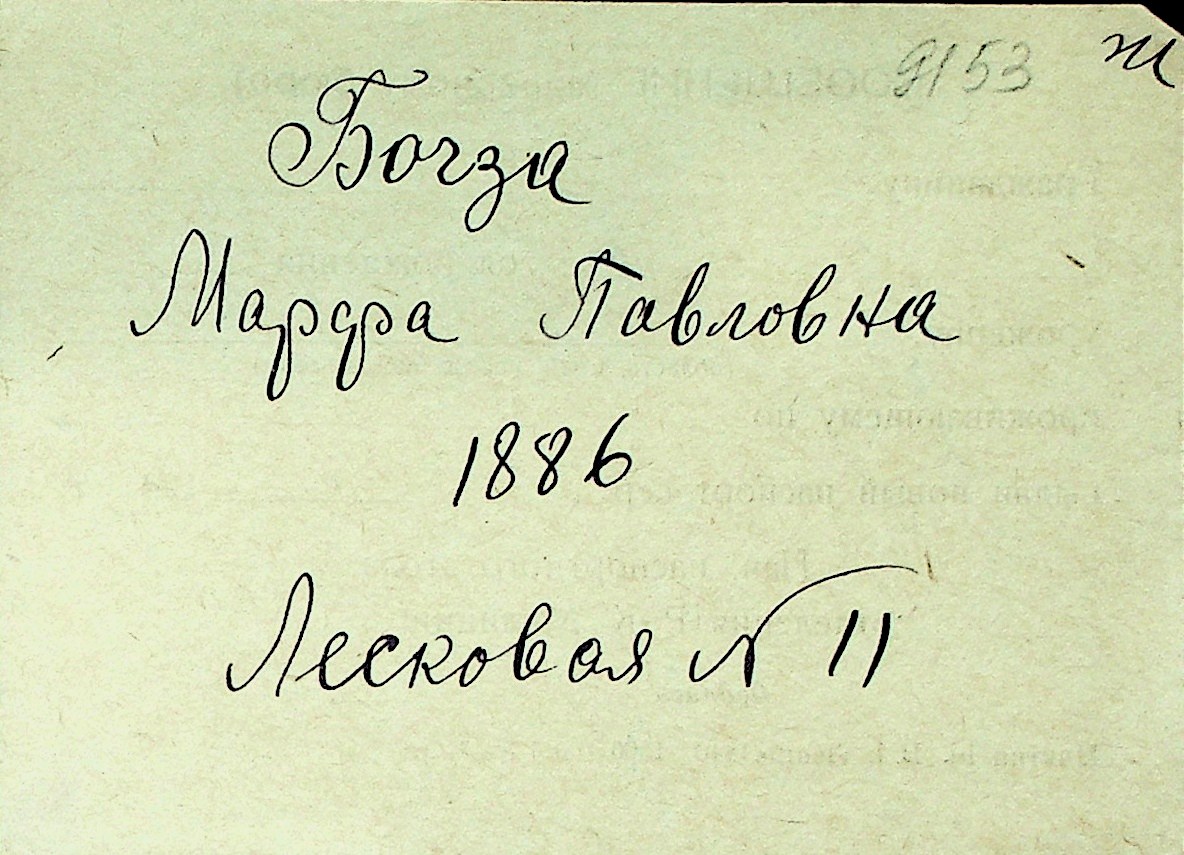 9153 ж
Богза
Марфа Павловна
1886
Лесковая № 11